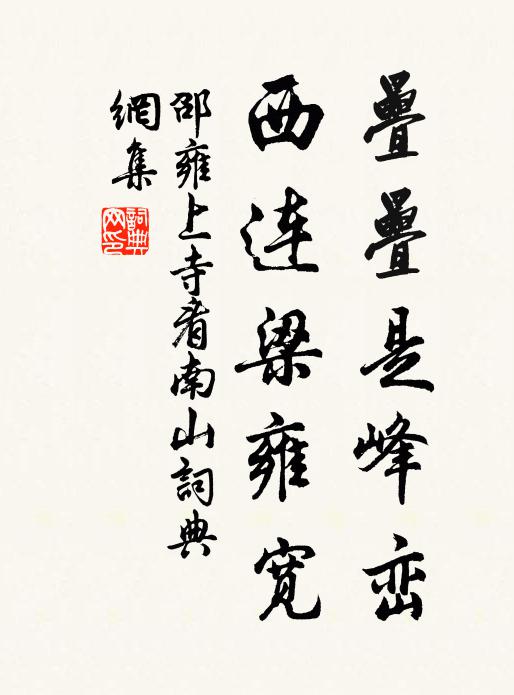 疊疊是峰峦
西连梁雍寬
邵雍上寺看南山詞典
網集
詞典网印